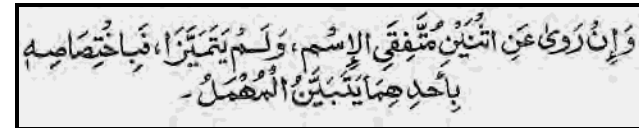 وَإِنْ رَوىٰ عَنِ اثْنَيْنِ مُتَّفِقَيِ الإِسْمِ، وَلَمْ يَتَمَيَّزَا، فَبِاخْتِصَاصِهِ
بِأَحَدِهِمَا يَتَبَيَّنُ الْمُهْمَلُ ۔